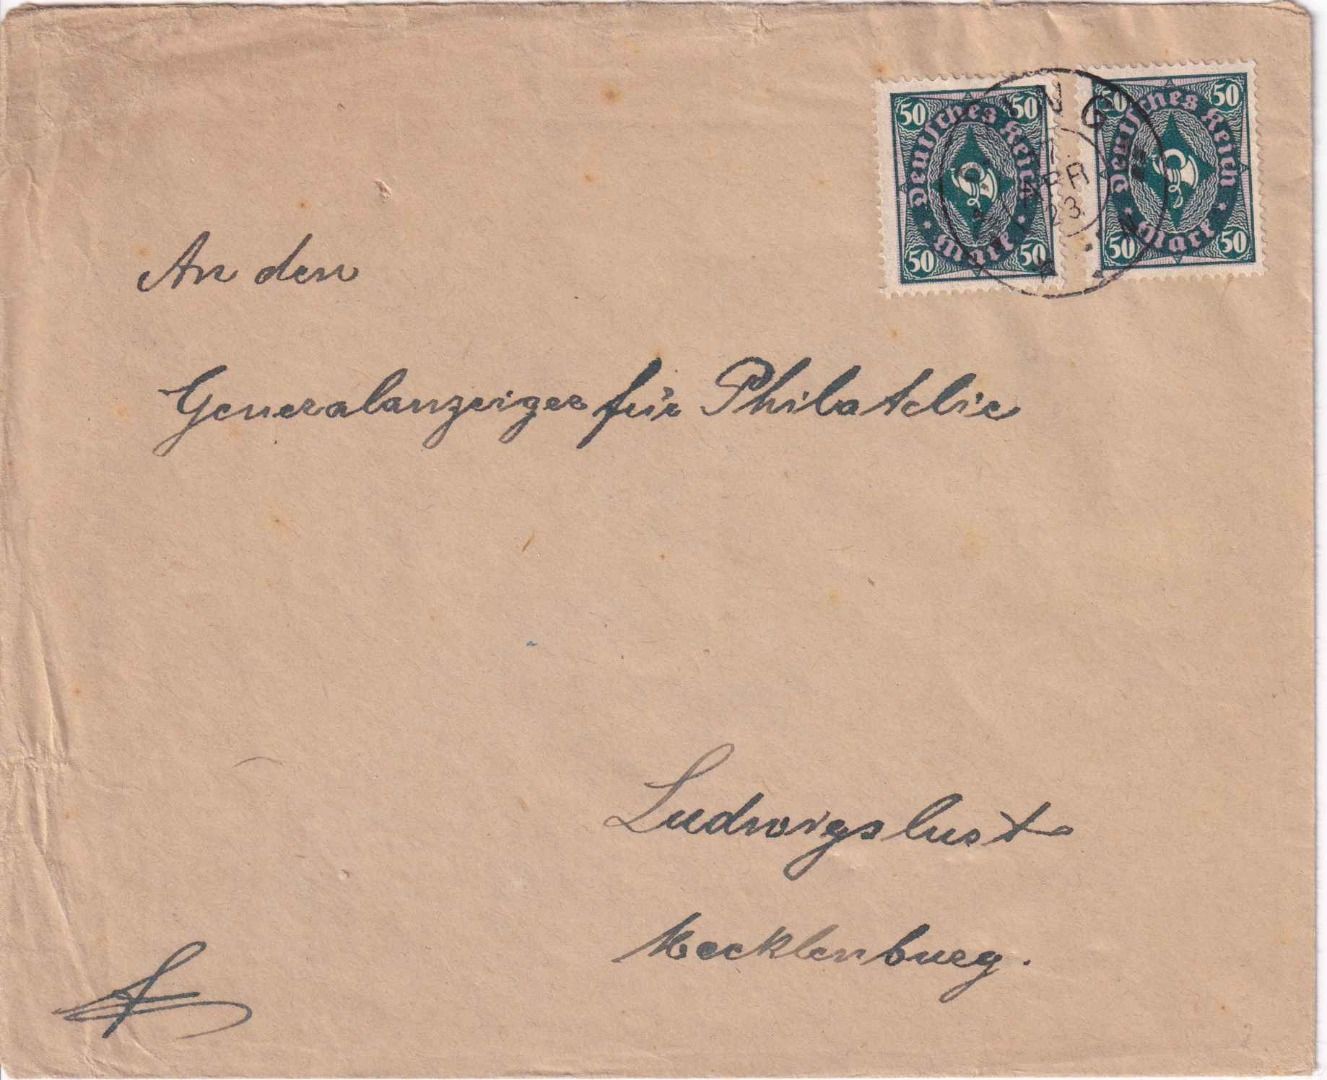 50 50
Deutsches Reich
Mark
50 50
50 50
Deutsches Reich
Mark
50 50
APR
23
An den
Generalanzeiger für Philatelie
Ludwigslust
Mecklenburg.